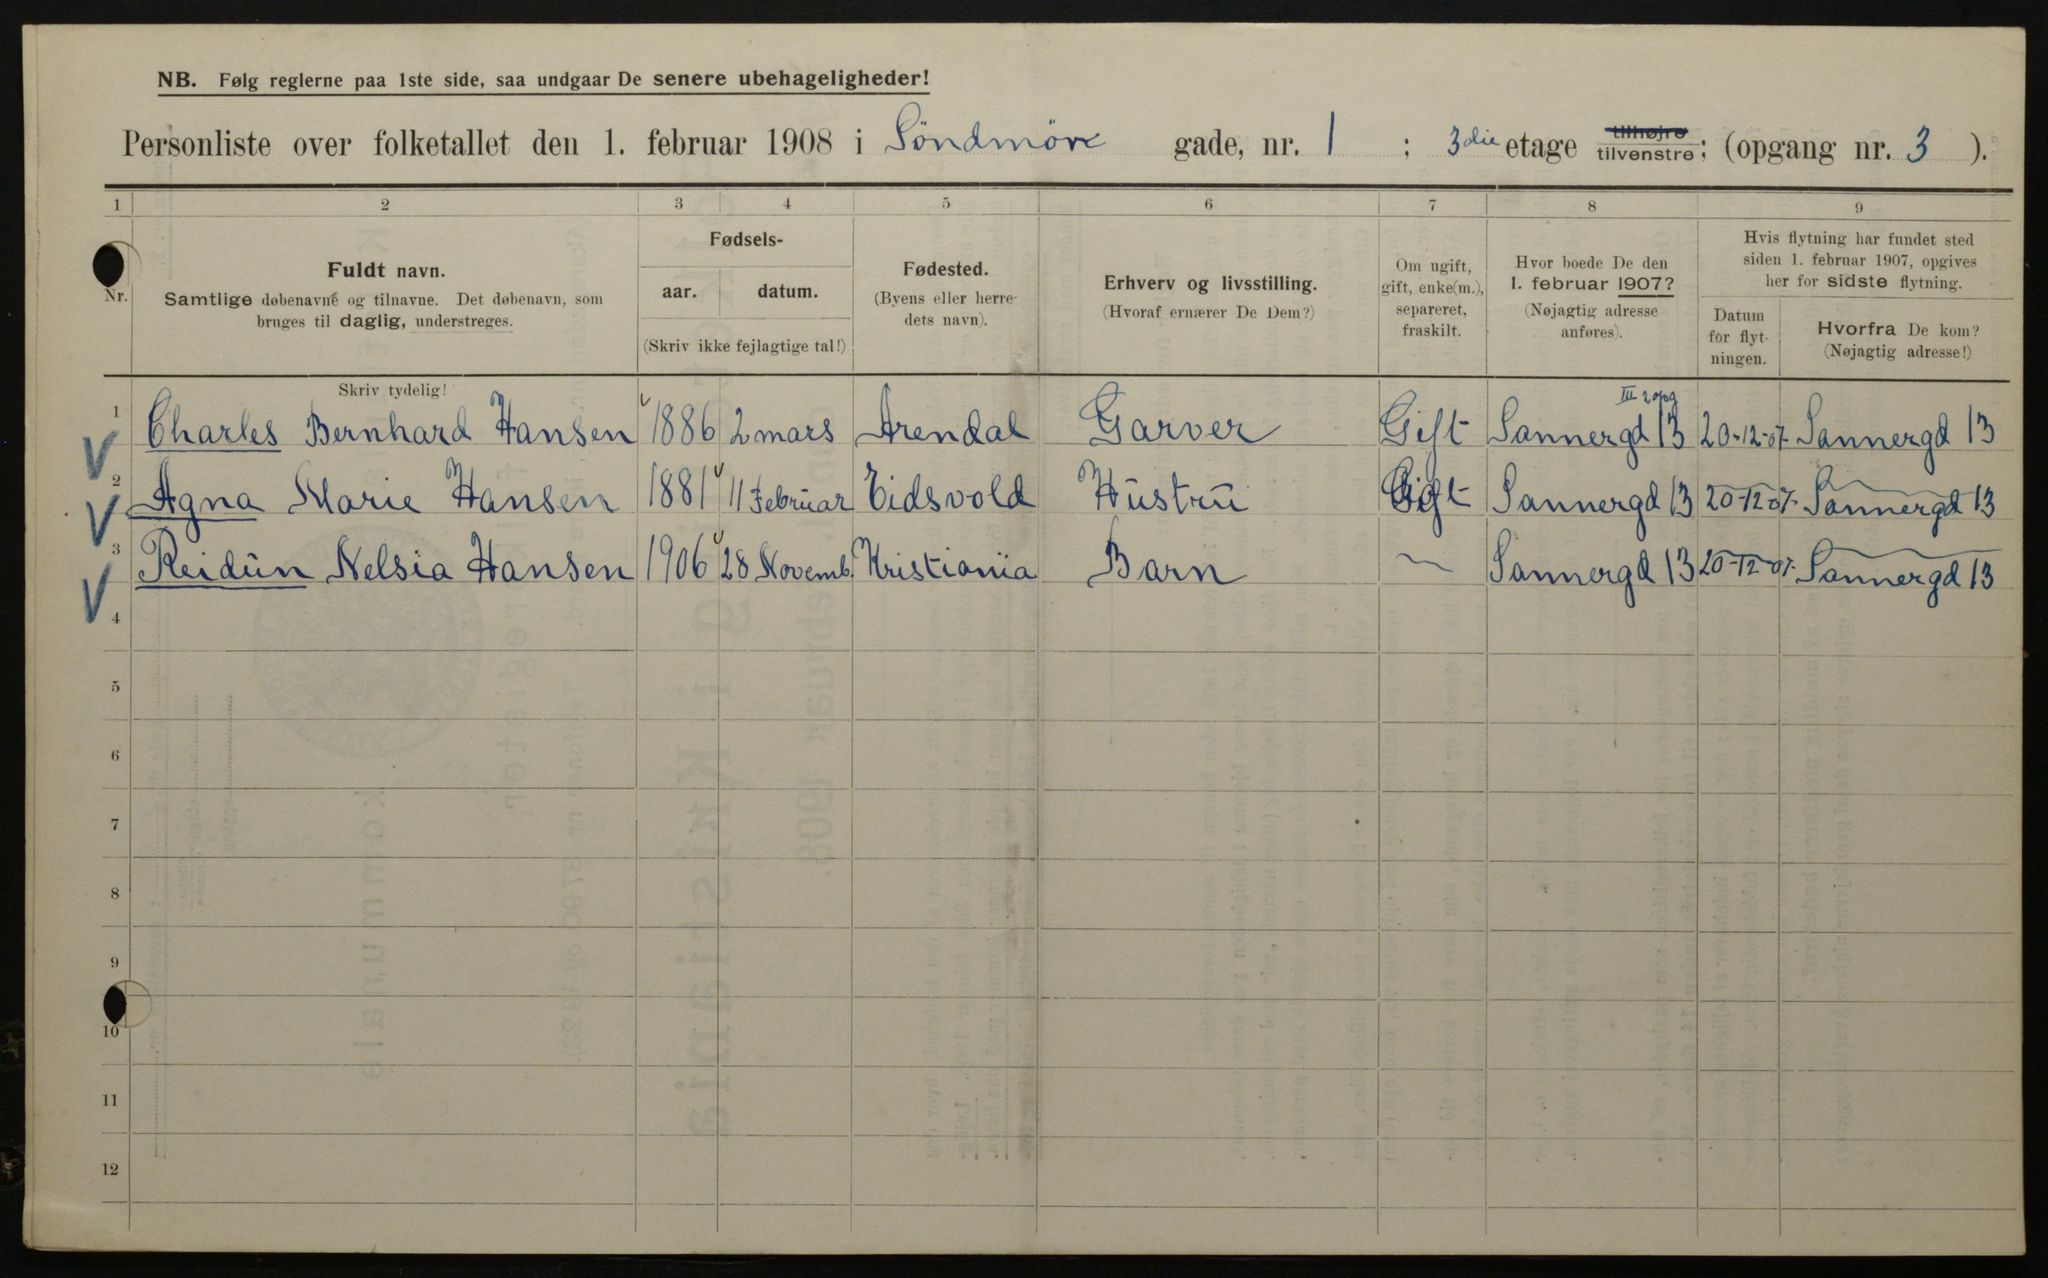 NB. Følg reglerne paa 1ste side, saa undgaar De senere ubehageligheder!
Personliste over folketallet den 1. februar 1908 i Söndmöre gade, nr. 1 ; 3die etage tilhøjre tilvenstre; (opgang nr. 3 ).
1 2 3 4 5 6 7 8 9
Nr.
Fuldt navn.
Samtlige døbenavne og tilnavne. Det døbenavn, som
bruges til daglig, understreges.
Fødsels-
aar. datum.
(Skriv ikke fejlagtige tal!)
Fødested.
(Byens eller herre-
dets navn).
Erhverv og livsstilling.
(Hvoraf ernærer De Dem?)
Om ugift,
gift, enke(m.),
separeret,
fraskilt.
Hvor boede De den
1. februar 1907?
(Nøjagtig adresse
anføres).
Hvis flytning har fundet sted
siden 1. februar 1907, opgives
her for sidste flytning.
Datum
for flyt-
ningen.
Hvorfra De kom?
(Nøjagtig adresse!)
Skriv tydelig!
1 Charles Bernhard Hansen 1886 2 mars Arendal Garver Gift Sannergd 13 20-12-07 Sannergd 13
2 Agna Marie Hansen 1881 11 Februar Eidsvold Hustru Gift Sannergd 13 20-12-07 Sannergd 13
3 Reidun Nelsia Hansen 1906 28 Novemb. Kristiania Barn ~ Sannergd 13 20-12-07 Sannergd 13
4
5
6
7
8
9
10
11
12